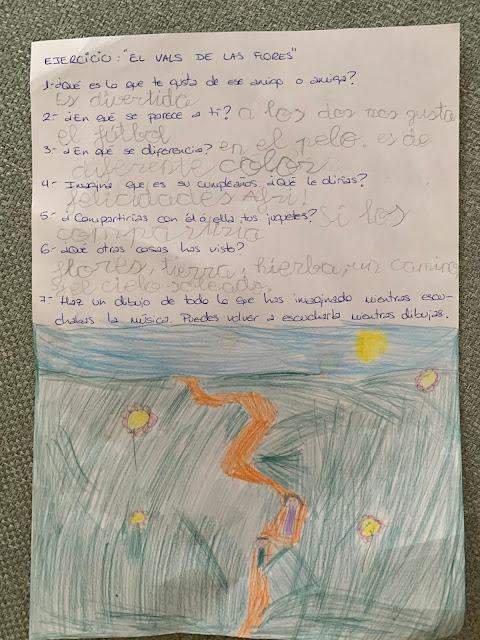 EJERCICIO: "EL VALS DE LAS FLORES"
1-¿Qué es lo que te gusta de ese amigo o amiga?
Es divertida
2- ¿En qué se parece a ti? a los dos nos gusta
el fútbol
3- ¿En qué se diferencia? en el pelo, es de
diferente color
4- Imagina que es su cumpleaños, ¿Qué le dirías?
felicidades Afri!
5- ¿Compartirías con él ó ella tus juguetes? Sí los
compartiría
6- ¿Qué otras cosas has visto?
flores, tierra, hierba, un camino
y el cielo soleado.
7- Haz un dibujo de todo lo que has imaginado mientras escu-
chabas la música. Puedes volver a escucharla mientras dibujas.